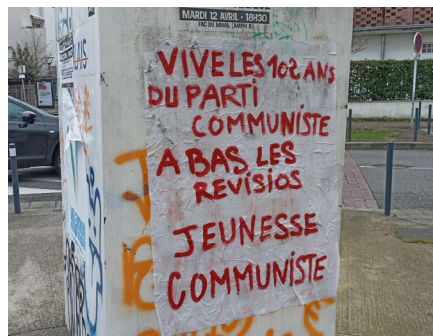 MARDI 12 AVRIL • 18H30
FAC DU MIRAIL (AMPHI 8)
VIVE LES 102 ANS
DU PARTI
COMMUNISTE
A BAS LES
REVISIOS
JEUNESSE
COMMUNISTE